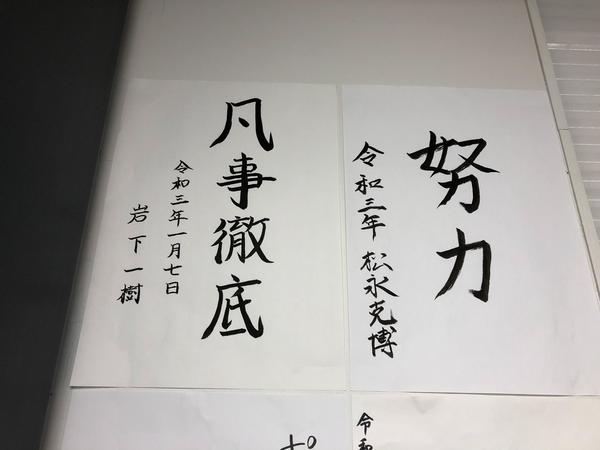 努力
令和三年 松永克博
凡事徹底
令和三年一月七日
岩下一樹
令和
ぽ